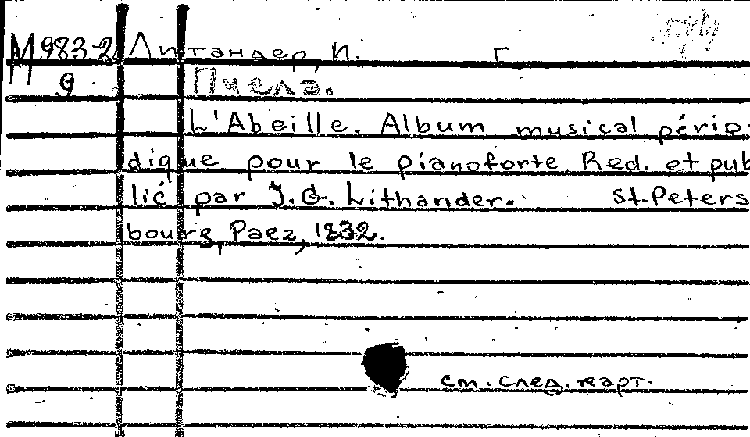 М 983-2 Литандер, И. Г
9 Пчела.
L'Abeille. Album musical pério-
dique pour le pianoforte Red. et pub
lié par J.G. Lithander. St.Peters
bourg, Paez, 1832.
см. след. карт.